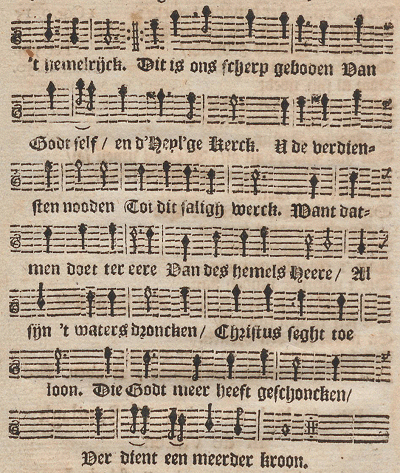 't hemelrijck. Dit is ons scherp geboden Van
Godt self / en d'Heyl'ge Kerck. U de verdien-
sten nooden Tot dit saligh werck. Want dat-
men doet ter eere Van des hemels Heere / Al
sijn 't waters droncken / Christus seght toe
loon. Die Godt meer heeft geschoncken /
Ver dient een meerder kroon.